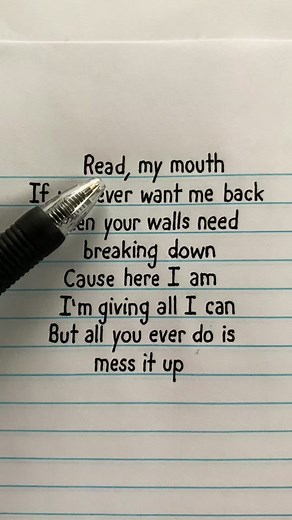 Read, my mouth
If ever want me back
your walls need
breaking down
Cause here I am
I'm giving all I can
But all you ever do is
mess it up